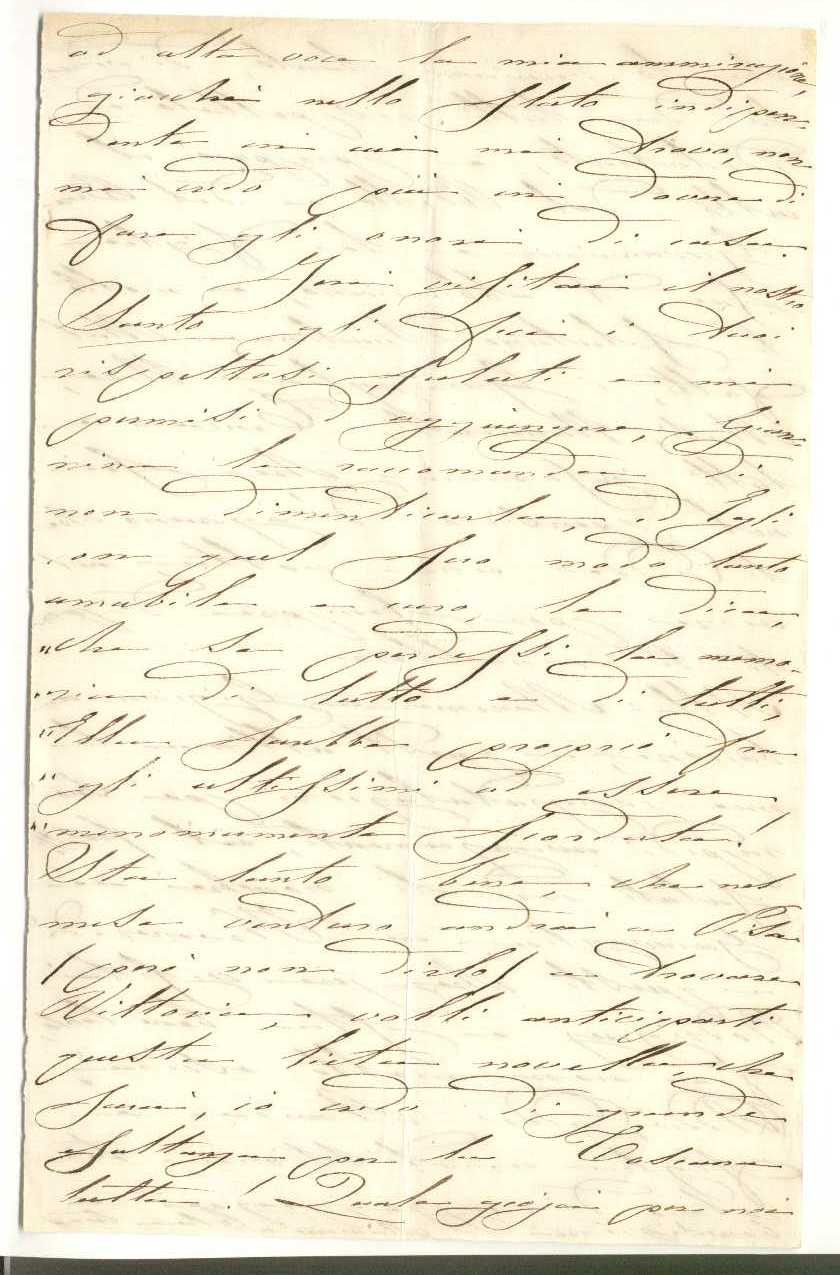 ad alta voce la mia ammirazione,
giacchè nello stato indipen-
dente in cui mi trovo, non
mi credo più in dovere di
fare gli onori di casa.
Ieri visitai il nostro
Santo gli diedi i tuoi
rispettosi saluti e mi
permisi d'aggiungere, Gian-
nina le raccomanda di
non dimenticarla, ed Egli
con quel suo modo tanto
amabile e caro, le dica,
"che se perdessi la memo-
"ria di tutto e di tutti,
"Ella sarebbe proprio fra
"gli ultissimi ad essere
"menomamente scordata!
Sta tanto bene, che nel
mese venturo andrà a Pisa
(però non dirlo) a trovare
Vittoria, volli anticiparti
questa lieta novella, che
sarà, io credo di grande
esultanza per la Toscana
tutta! Quale gioja per noi